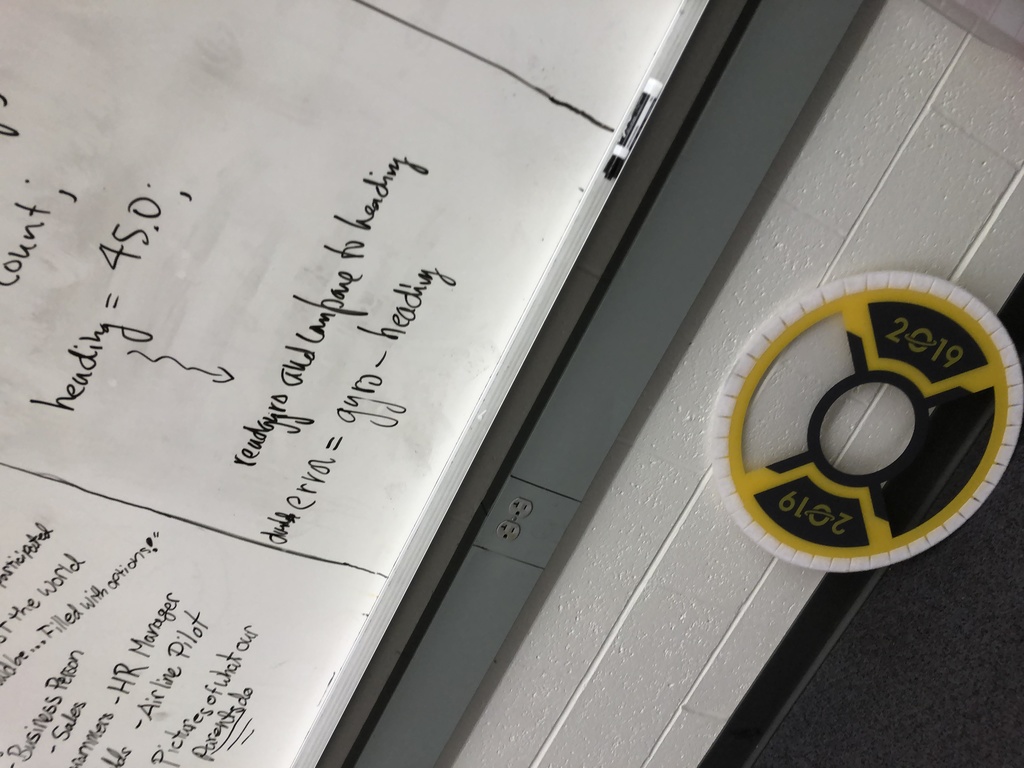 participated
of the world
Filled with options!"
- Business Person
- Sales
- HR Manager
- Airline Pilot
Pictures of what our
Parents do
count;
heading = 45.0;
read gyro and compare to heading
double error = gyro - heading
2019
2019